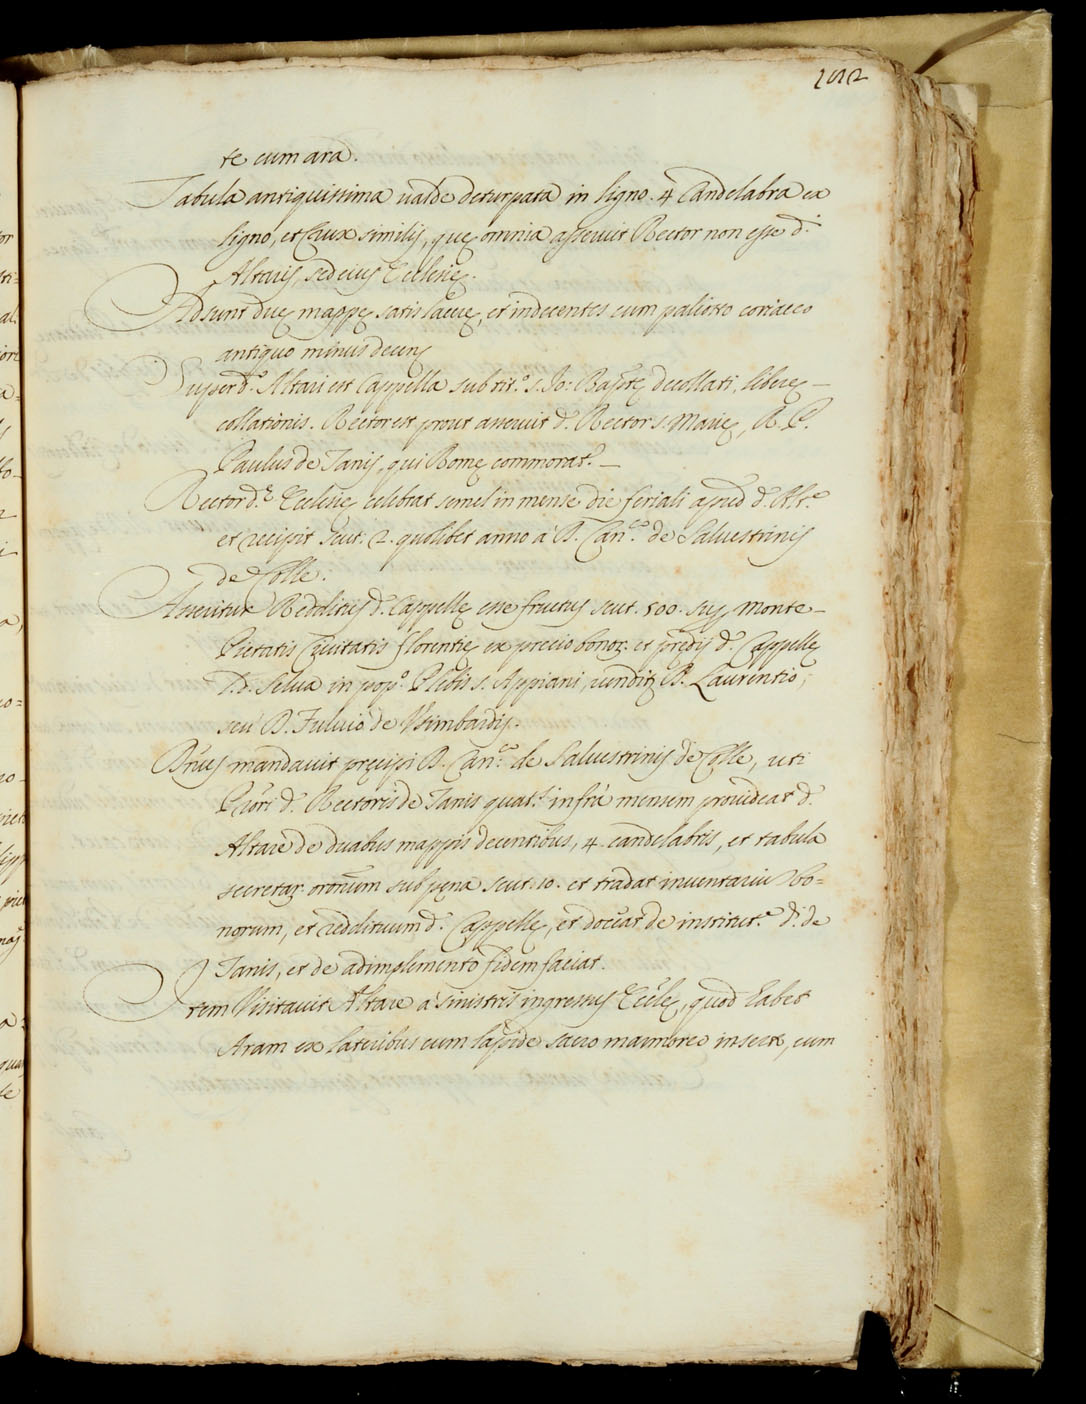 te cum ara.
Tabula antiquissima ualde deturpata in ligno. 4 Candelabra ex
ligno, et Crux similis, quę omnia asseruit Rector non esse d.
Altaris, sed eius Ecclesię.
Adsunt duę mappę satis lacerę, et indecentes cum paliotto coriaceo
antiquo minus decens
Super d.º Altari est Cappella sub tit.º s. Jo: Baptę decollati, liberę
collationis. Rector est prout asseruit d. Rector s. Marię, R. P.
Paulus de Janis, qui Romę commorat.r
Rector d.ę Ecclesię celebrat semel in mense die feriali apud d. Alt.e
et recipit scut: 2. quolibet anno à D. Can.co de Saluestrinis
de Colle.
Asseritur Redditus d. Cappellę esse fructus scut. 500. sup. Monte
Pietatis Ciuitatis Florentię ex precio bonor. et prędij d. Cappellę
l.d. Selua in pop.º Plebis s. Appiani, uendit. D. Laurentio,
seu D. Fuluio de Vsimbardis.
Dñus mandauit pręcipi D. Can.co de Saluestrinis de Colle, uti
Pñri d. Rectoris de Janis quat.s infrà mensem prouideat d.
Altare de duabus mappis decentibus, 4. candelabris, et tabula
secretar. oronum sub pęna scut. 10. et tradat inuentariũ bo=
norum, et reddituum d. Cappellę, et doceat de institut.e d. de
Janis, et de adimplemento fidem faciat.
Item Visitauit Altare à sinistris ingressus Ecclę, quod habet
Aram ex lateribus cum lapide sacro marmoreo inserto, cum